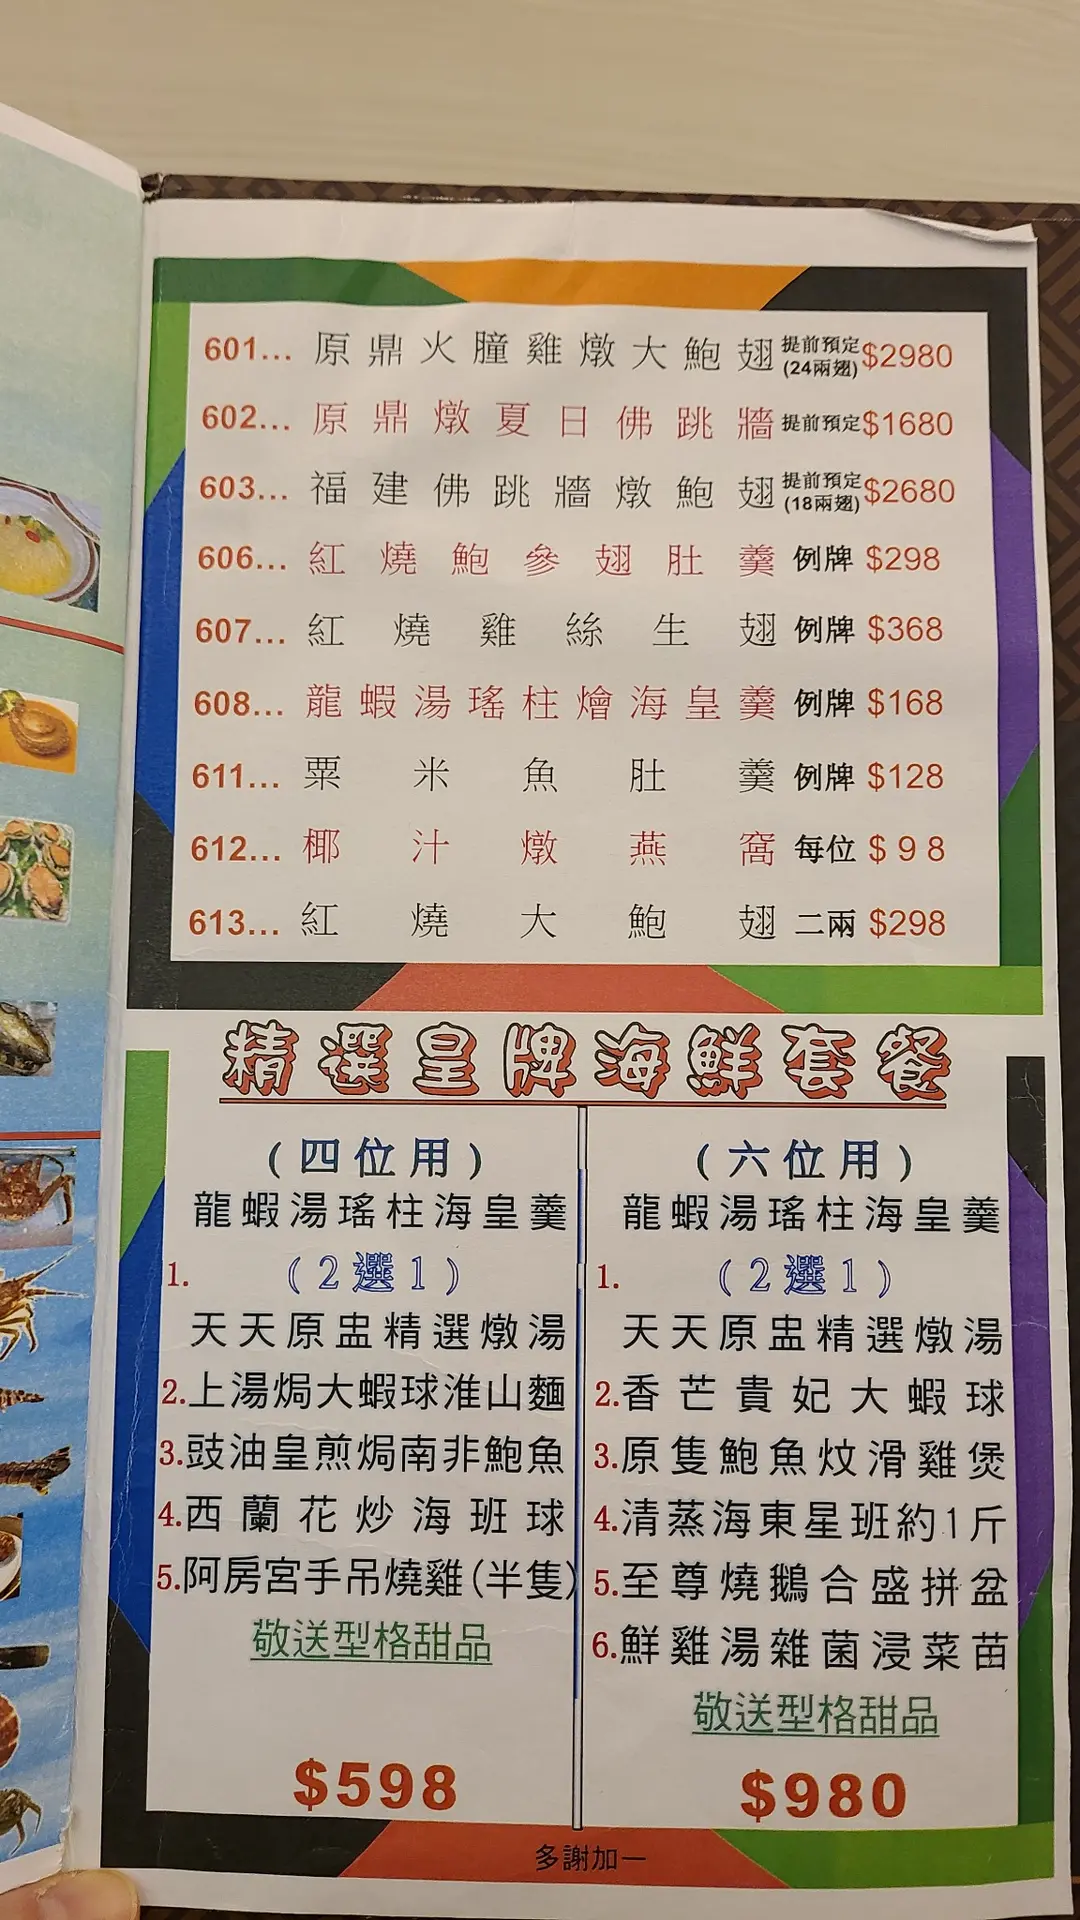 601... 原鼎火膧雞燉大鮑翅 提前預定(24兩翅) $2980
602... 原鼎燉夏日佛跳牆 提前預定 $1680
603... 福建佛跳牆燉鮑翅 提前預定(18兩翅) $2680
606... 紅燒鮑參翅肚羹 例牌 $298
607... 紅燒雞絲生翅 例牌 $368
608... 龍蝦湯瑤柱燴海皇羹 例牌 $168
611... 粟米魚肚羹 例牌 $128
612... 椰汁燉燕窩 每位 $98
613... 紅燒大鮑翅 二兩 $298
精選皇牌海鮮套餐
(四位用)
龍蝦湯瑤柱海皇羹
1. (2選1)
天天原盅精選燉湯
2.上湯焗大蝦球淮山麵
3.豉油皇煎焗南非鮑魚
4.西蘭花炒海班球
5.阿房宮手吊燒雞(半隻)
敬送型格甜品
$598
(六位用)
龍蝦湯瑤柱海皇羹
1. (2選1)
天天原盅精選燉湯
2.香芒貴妃大蝦球
3.原隻鮑魚炆滑雞煲
4.清蒸海東星班約1斤
5.至尊燒鵝合盛拼盆
6.鮮雞湯雜菌浸菜苗
敬送型格甜品
$980
多謝加一